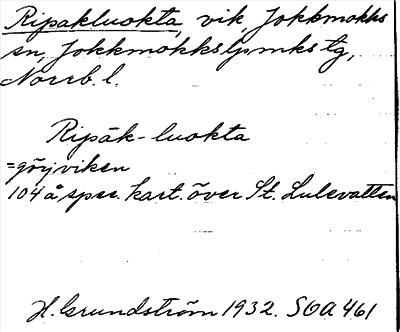 Ripakluokta, vik, Jokkmokks
sn, Jokkmokks lpmks tg,
Norrb. l.
Ripāk-luokta
=görjviken
104 å spec. kart. över St. Lulevatten
H. Grundström 1932. SOA 461